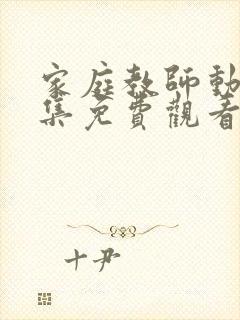 家庭教師動
集免費觀看
十尹